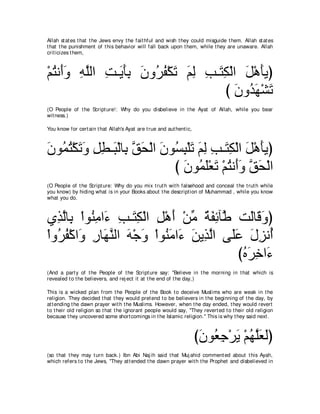 Allah states that the Jews envy the faithful and wish they could misguide them. Allah states
that the punishment of this behavior will fall back upon them, while they are unaware. Allah
criticizes them,
يأَهْلَ الْكِتَـبِ لِمَ تَكْفُرُونَ بِأَيَـتِ اللَّهِ وَأَنتُمْ
تَشْهَدُونَ )
(O People of the Scripture!: Why do you disbelieve in the Ayat of Allah, while you bear
witness.)
You know for certain that Allah's Ayat are true and authentic,
(يأَهْلَ الْكِتَـبِ لِمَ تَلْبِسُونَ الْحَقَّ بِالْبَـطِلِ وَتَكْتُمُونَ
الْحَقَّ وَأَنتُمْ تَعْلَمُونَ )
(O People of the Scripture: Why do you mix truth with falsehood and conceal the truth while
you know) by hiding what is in your Books about the description of Muhammad , while you know
what you do.
(وَقَالَت طَّآئِفَةٌ مِّنْ أَهْلِ الْكِتَـبِ ءَامِنُواْ بِالَّذِي
أُنزِلَ عَلَى الَّذِينَ ءَامَنُواْ وَجْهَ النَّهَارِ وَاكْفُرُواْ
ءَاخِرَهُ)
(And a party of the People of the Scripture say: "Believe in the morning in that which is
revealed to the believers, and reject it at the end of the day,)
This is a wicked plan from the People of the Book to deceive Muslims who are weak in the
religion. They decided that they would pretend to be believers in the beginning of the day, by
attending the dawn prayer with the Muslims. However, when the day ended, they would revert
to their old religion so that the ignorant people would say, "They reverted to their old religion
because they uncovered some shortcomings in the Islamic religion." This is why they said next.
(لَعَلَّهُمْ يَرْجِعُونَ)
(so that they may turn back.) Ibn Abi Najih said that Mujahid commented about this Ayah,
which refers to the Jews, "They attended the dawn prayer with the Prophet and disbelieved in